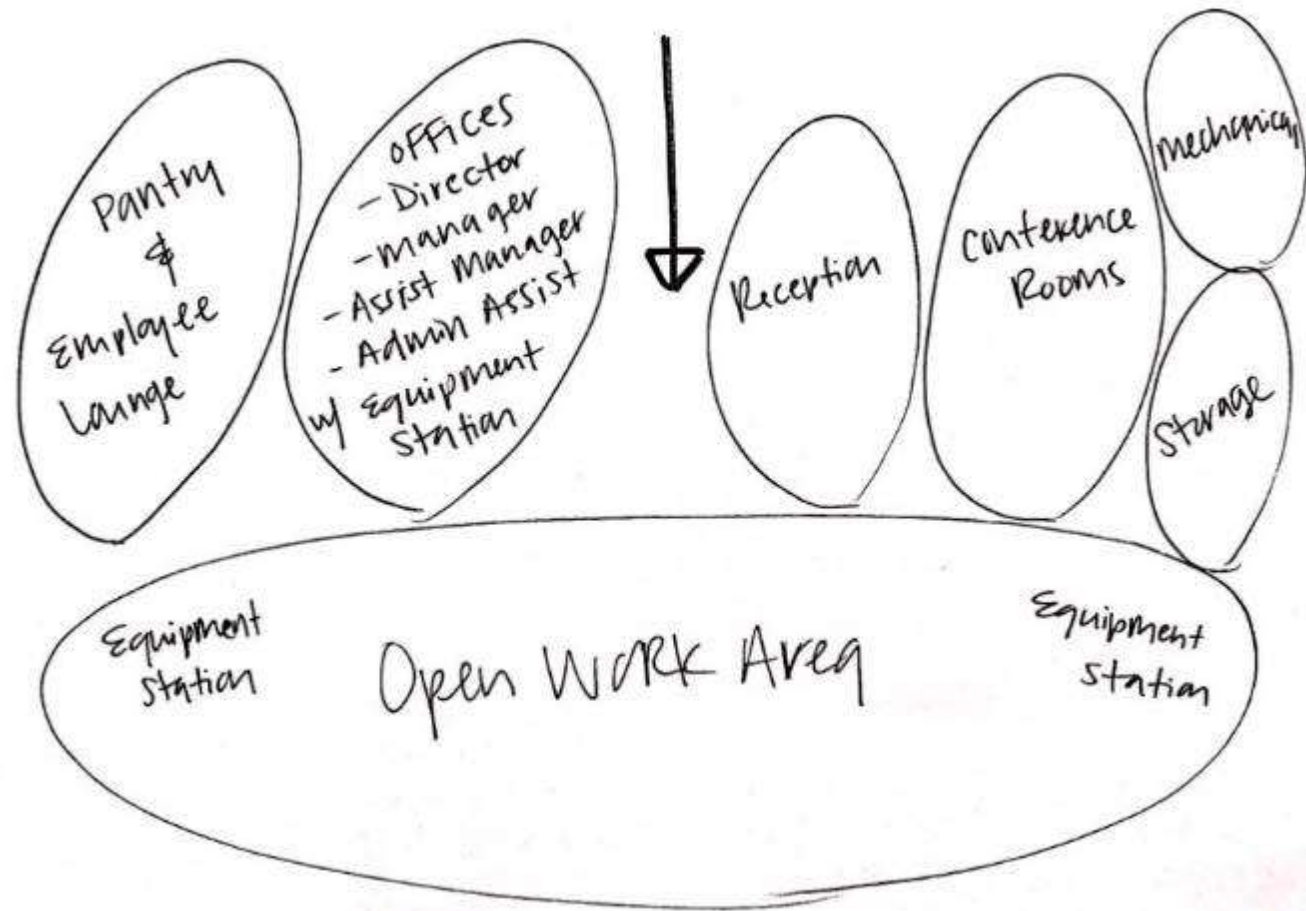 Pantry
&
Employee
Lounge
OFFICES
- Director
- manager
- Assist Manager
- Admin Assist
w/ Equipment
Station
Reception
Conference
Rooms
Mechanical
Storage
Equipment
Station
Open Work Area
Equipment
Station